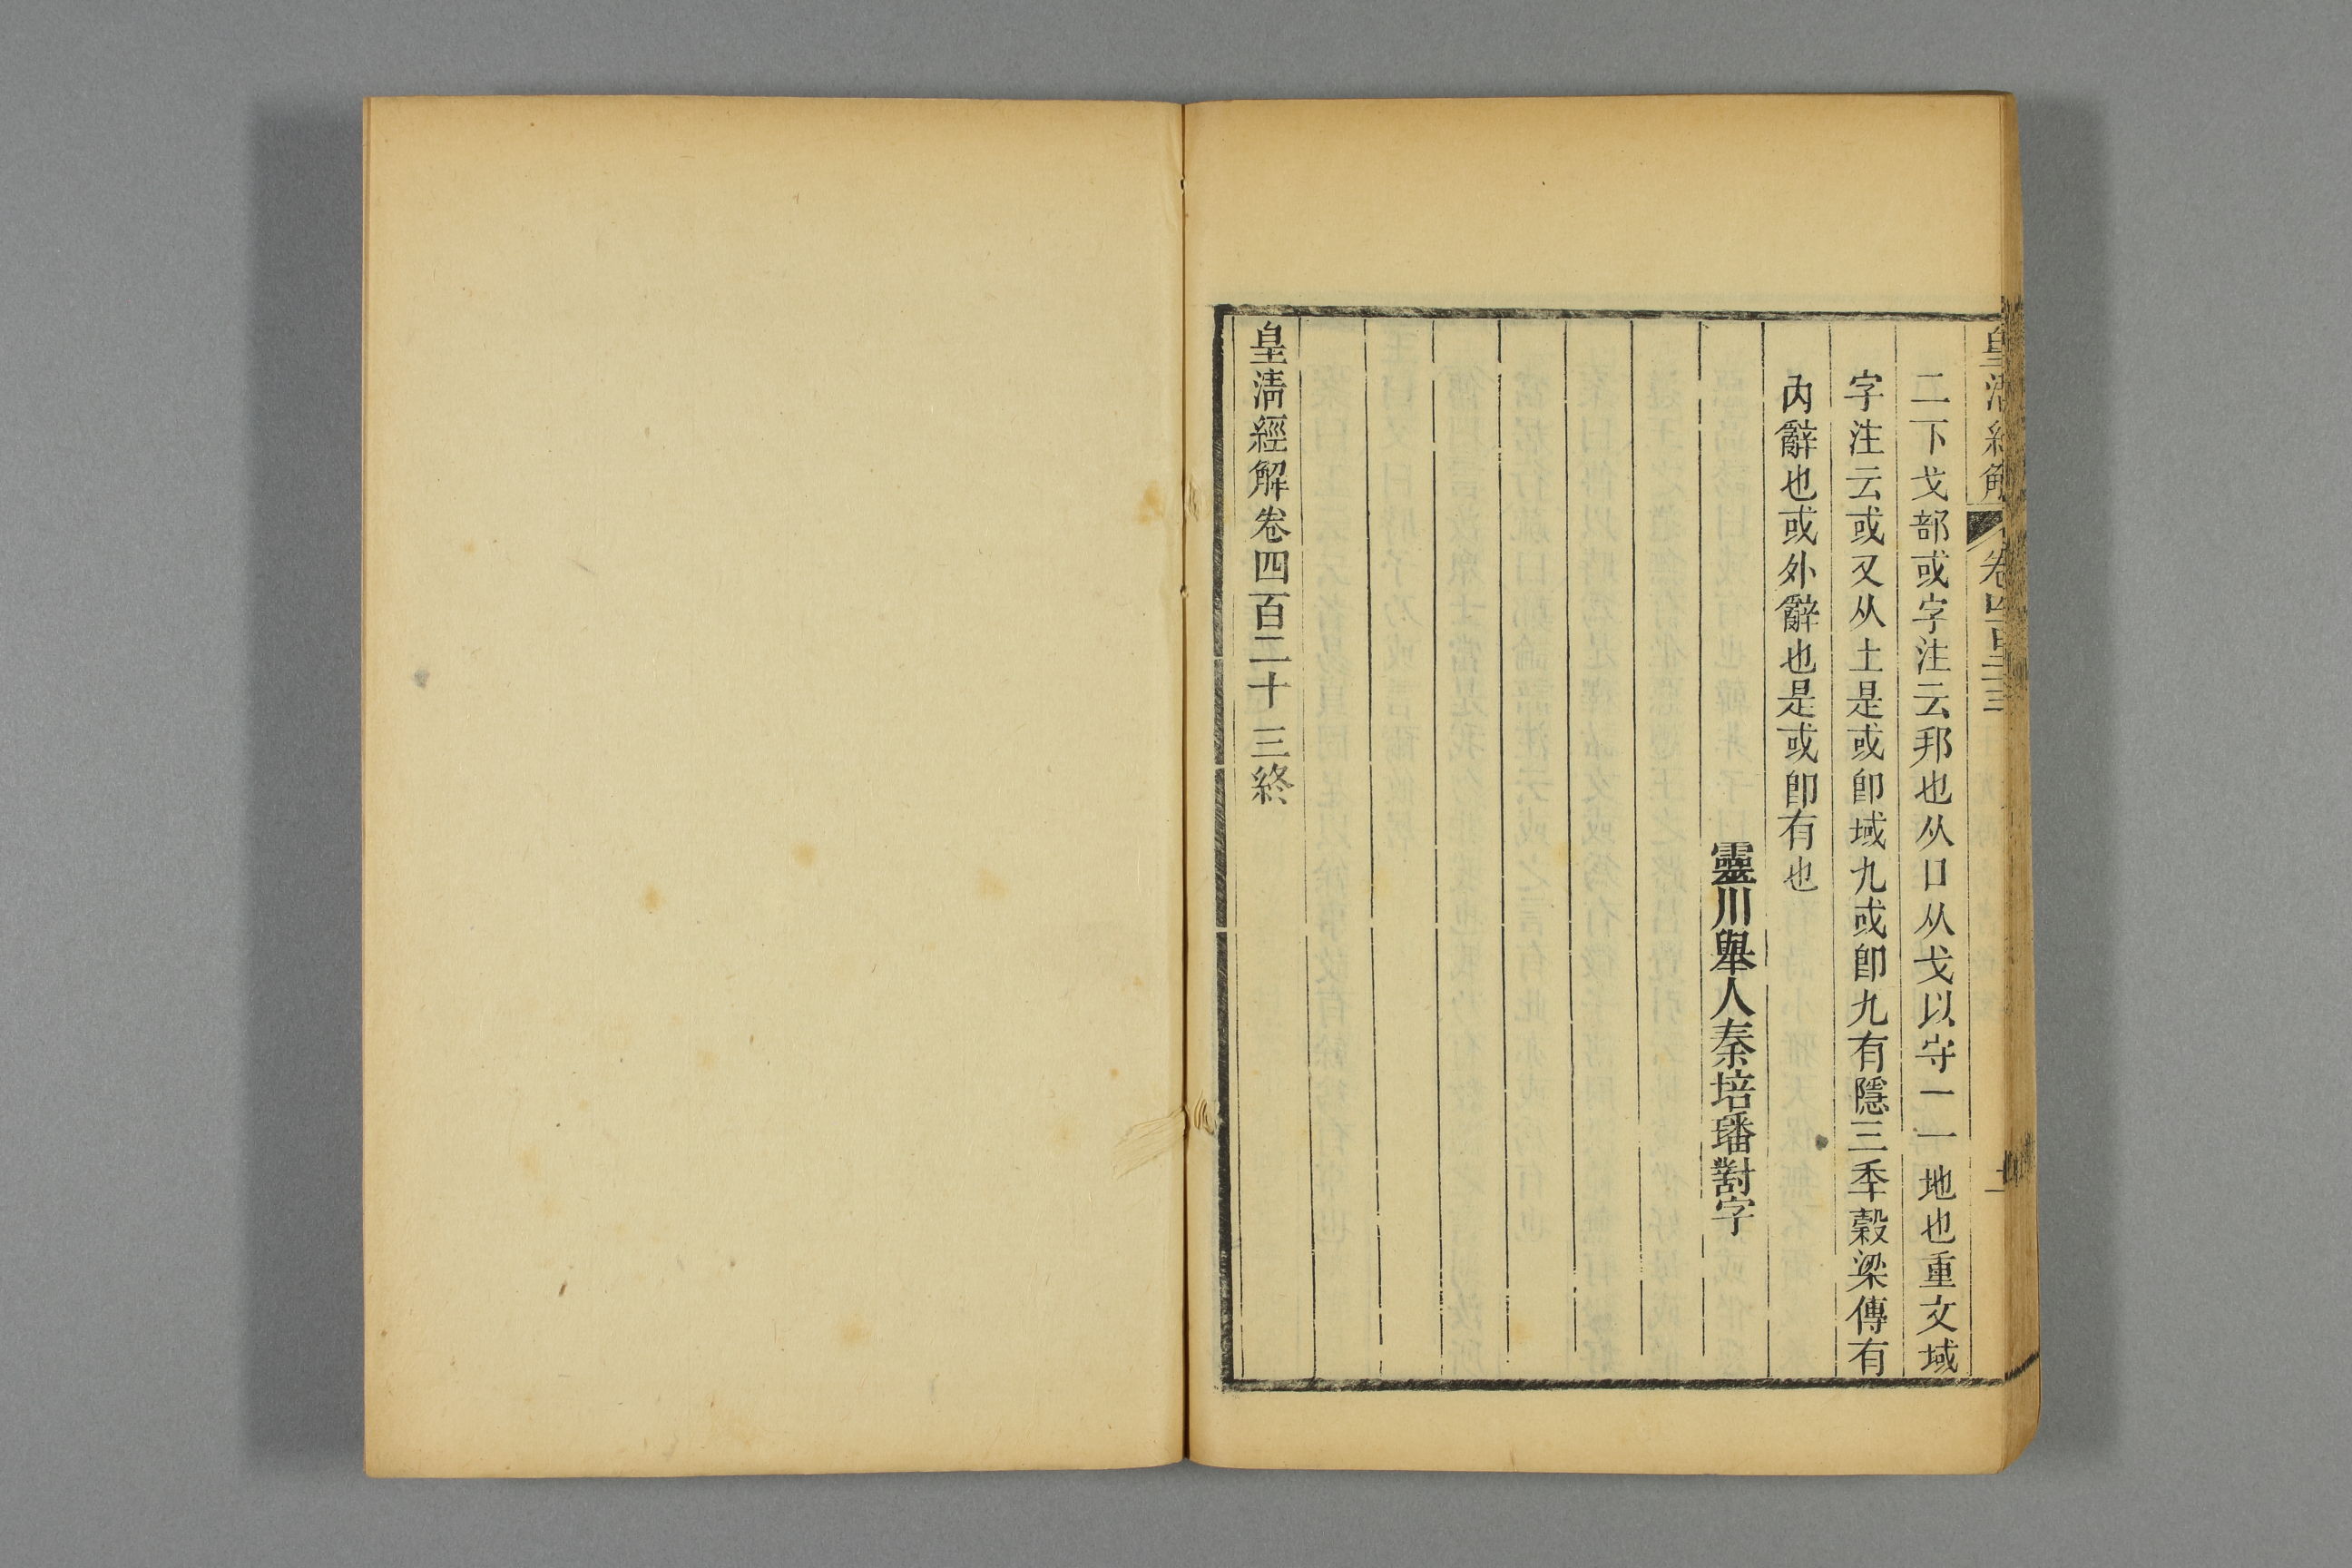 皇清經解 卷四百二十三
二下戈部或字注云邦也从口从戈以守一一地也重文域
字注云或又从土是或卽域九或卽九有隱三秊穀梁傳有
內辭也或外辭也是或卽有也
靈川舉人秦培璠對字
皇淸經解卷四百二十三終